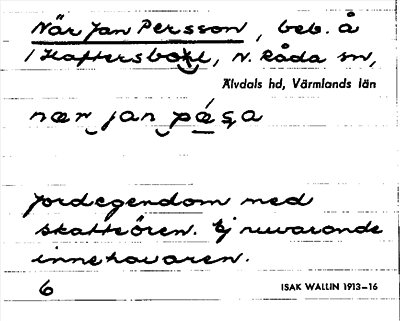 När Jan Persson, beb. å
1 Haftersbol, N. Råda sn,
Älvdals hd, Värmlands län
nær jan pǽșa
Jordegendom med
skatteören. Ej nuvarande
innehavaren.
6 ISAK WALLIN 1913–16